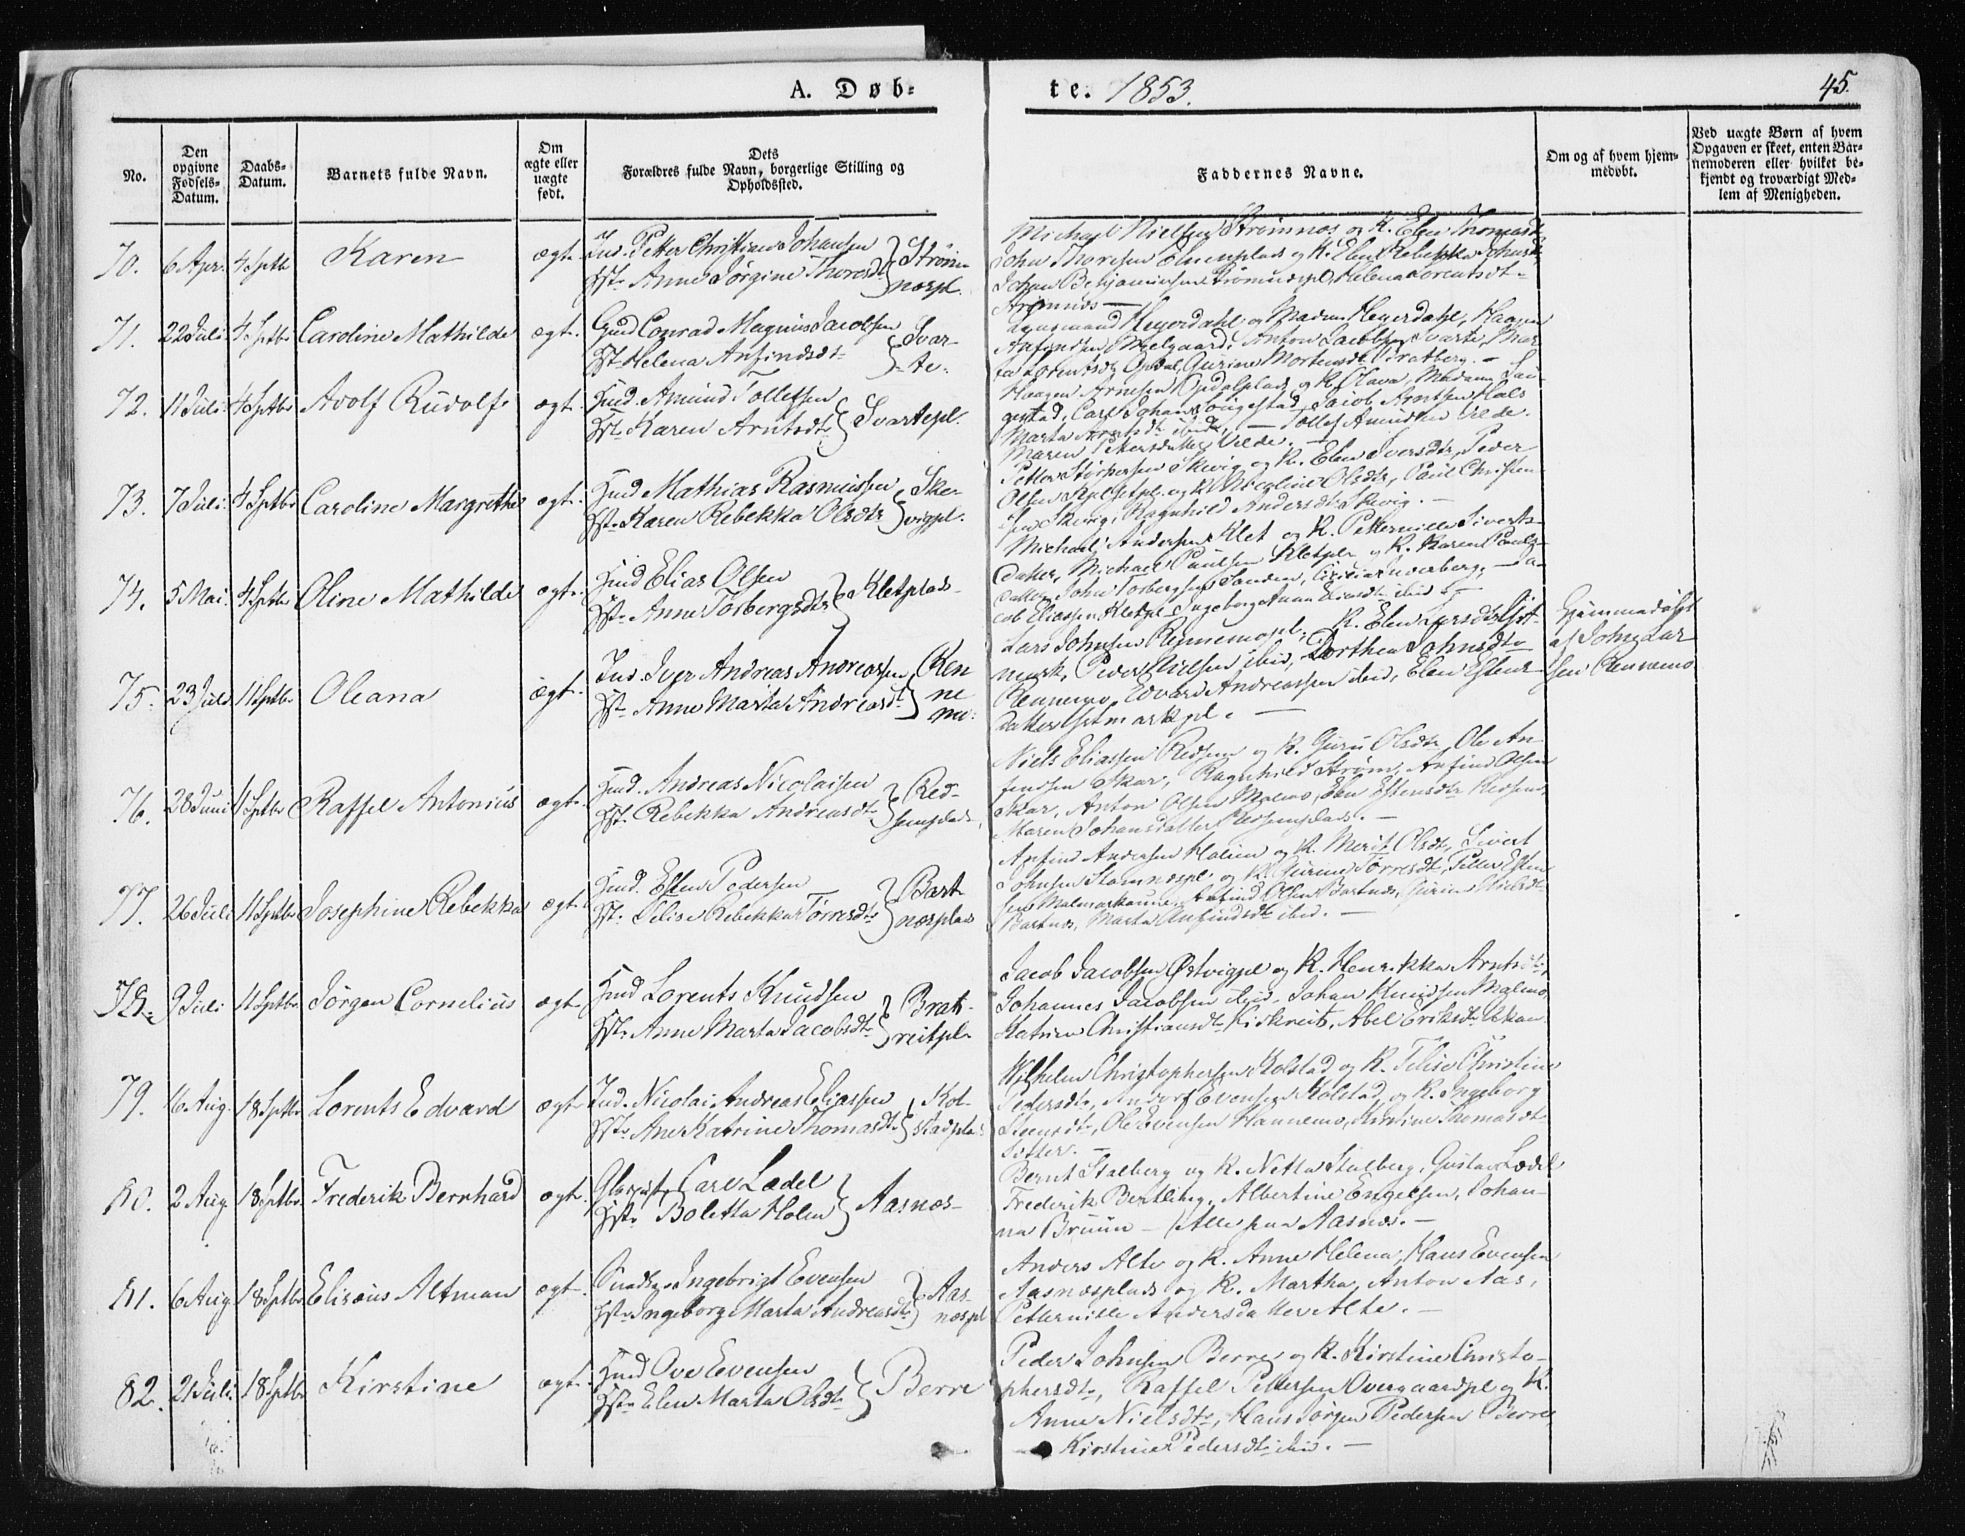 A. Døb-
te. 1853.
45.
No.
Den opgivne Fødsels-Datum.
Daabs-Datum.
Barnets fulde Navn.
Om ægte eller uægte født.
Dets Forældres fulde Navn, borgerlige Stilling og Opholdssted.
Faddernes Navne.
Om og af hvem hjemmedøbt.
Ved uægte Børn af hvem Opgaven er skeet, enten Barnemoderen eller hvilket bekjendt og troværdigt Medlem af Menigheden.
70. 6 Apr. 4 Septb Karen ægt. Ind. Petter Christian Johansen
Hst. Anne Jørgine Thoresdt } Strømnæspl.
Michael Nielsen Strømnæs og K. Elen Thomasdt
John Thoresen Elnenplads og K. Elen Rebekka Johnsdt
Johan Benjaminsen Strømnæspl, Helena Lorentsdt
Strømnæs —
71. 22 Juli 4 Septbr Caroline Mathilde ægt. Gmd Conrad Magnus Jacobsen
Hst. Helena Anfindsdt } Svarte.
Heyerdahl og Madam Heyerdahl, Haagen
Anfindsen Melgaard, Anton Jacobsen Svarte, Mar
ta Lorentsdt Opdal, Gurine Mortensdt Bratberg. —
72. 11 Juli 4 Septbr Adolf Rudolf ægt. Hmd. Amund Tollefsen
Hst. Karen Arntsdt } Svartepl.
Haagen Arnesen Opdalplads og K. Olava, Madam
Carl Johan Jacob Arntsen Hals
Marta Arntsdt ibid, — Tollef Amundsen Velde.
Maren Velde. —
73. 7 Juli 4 Septbr Caroline Margrethe ægt. Hmd Mathias Rasmussen
Hst. Karen Rebekka Olsdtr } Skevigpl.
Petter Skevig og K. Elen Iversdtr, Peder
Olsen og K. Nicoline Olsdtr, Paul Christen
sen Skevig, Ragnhild Andersdt Skevig. —
74. 5 Mai 4 Septbr Oline Mathilde ægt. Hmd Elias Olsen
Hst. Anne Torbergsdtr } Kletplads
Michael Andersen Klet og K. Petternille Siverts
datter, Michael Paulsen Kletpl og K. Karen Pauls
datter, John Torbergsen Sanden, — Ja
cob Eliassen Kletpl, Ingeborg Anna Eliasdt ibid. —
75. 23 Juli 11 Septbr Oleana ægt. Ind. Iver Andreas Andreassen
Hst. Anne Marta Andreasdt } Rennemo.
Lars Johnsen Rennemopl, K. Elen Larsdt
mark, Peder Nielsen ibid, Dorthea Johnsdt
Rennemo, Edvard Andreassen ibid, Elen Estens
datter markpl. —
Hjemmedøbt
af John Lar
sen Rennemo
76. 28 Juni 11 Septbr Raffel Antonius ægt. Hmd. Andreas Nicolaisen
Hst. Rebekka Andreasdt } Redsemplads
Niels Eliassen Redsem og K. Guru Olsdtr, Ole An
findsen Skar, Ragnhild Strøm, Anfind Olsen
Skar, Anton Olsen Malmo, Elen Estensdtr Redsem,
Maren Johansdatter Redsemplads. —
77. 26 Juli 11 Septbr Josephine Rebekka ægt. Hmd. Esten Pedersen
Hst. Delise Rebekka Torresdt } Bartnæsplads
Anfind Andersen Holien og K. Merit Olsdt, Sivert
Johnsen Stamnæspl og K. Gurine Torresdt, Petter Esten
sen Anfind Olsen Bartnæs, Gurine Nielsdt
Bartnæs, Marta Anfindsdt ibid. —
78. 9 Juli 11 Septbr Jørgen Cornelius ægt. Hmd Lorents Knudsen
Hst. Anne Marta Jacobsdt } Bratreitpl.
Jacob Jacobsen Østvigpl og K. Henrikka Arntsdt,
Johannes Jacobsen ibid, Johan Knudsen Malmo,
Katrine Christiansdt Kirkreit, Abel Eriksdt
79. 16 Aug. 18 Septbr Lorents Edvard ægt. Ind. Nicolai Andreas Eliassen
Hst. Ane Katrine Thomasdt } Kolstadplads
Wilhelm Christophersen Kolstad og K. Felise Christine
Pedersdt, Andor Evensen Kolstad, og K. Ingeborg
Steensdt, Ole Evensen Hannemo, Kirstine Thomasdt
—
80. 2 Aug. 18 Septbr Frederik Bernhard ægt. Carl Lædel
Hst. Boletta Holm } Aasnæs
Bernt Stalberg og K. Netta Stalberg, Gustav Lædel
Frederik Bertling, Albertine Engelsen, Johan
na Bruun — Alle paa Aasnæs. —
81. 6 Aug. 18 Septbr Elisæus Altman ægt. Ingebrigt Evensen
Hst. Ingeborg Marta Andreasdt } Aasnæspl
Anders Alte og K. Anne Helena, Hans Evensen
Aasnæsplads og K. Martha, Anton Aas,
Petternille Andersdatter Alte. —
82. 21 Juli 18 Septbr Kirstine ægt. Hmd Ove Evensen
Hst. Elen Marta Olsdt } Berre
Peder Johnsen Berre og K. Kirstine Christo-
phersdt, Raffel Pettersen Overgaardpl og K.
Anne Nielsdt, Hans Jørgen Pedersen Berre
Kirstine Pedersdt ibid. —